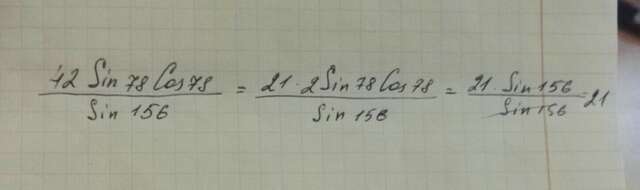 42 Sin 78 Cos 78 / Sin 156 = 21 · 2 Sin 78 Cos 78 / Sin 156 = 21 · Sin 156 / Sin 156 = 21